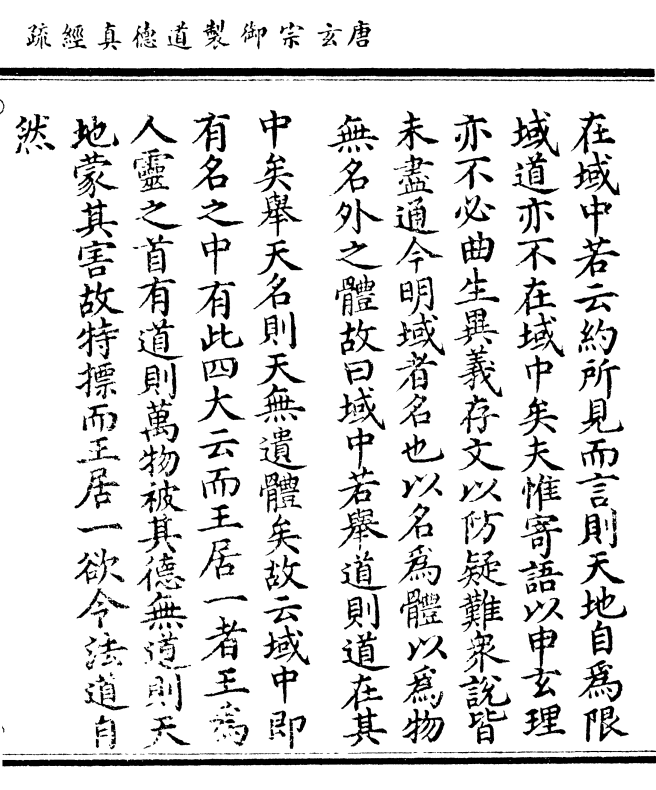 唐玄宗御製道德真經疏
在域中若云約所見而言則天地自爲限
域道亦不在域中矣夫惟寄語以申玄理
亦不必曲生異義存文以防疑難衆說皆
未盡通今明域者名也以名爲體以爲物
無名外之體故曰域中若舉道則道在其
中矣舉天名則天無遺體矣故云域中即
有名之中有此四大云而王居一者王爲
人靈之首有道則萬物被其德無道則天
地蒙其害故特摽而王居一欲令法道自
然